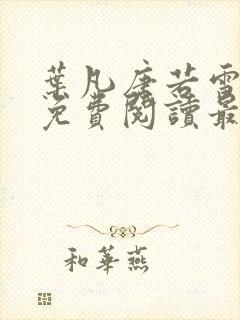 葉凡唐若雪
免費閱讀最
和華燕